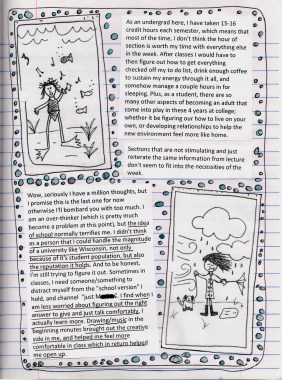 As an undergrad here, I have taken 15-16
credit hours each semester, which means that
most of the time, I don't think the hour of
section is worth my time with everything else
in the week. After classes I would have to
then figure out how to get everything
checked off my to do list, drink enough coffee
to sustain my energy through it all, and
somehow manage a couple hours in for
sleeping. Plus, as a student, there are so
many other aspects of becoming an adult that
come into play in these 4 years at college;
whether it be figuring our how to live on your
own, or developing relationships to help the
new environment feel more like home.
Sections that are not stimulating and just
reiterate the same information from lecture
don't seem to fit into the necessities of the
week.
Wow, seriously I have a million thoughts, but
I promise this is the last one for now
otherwise I'll bombard you with too much. I
am an over-thinker (which is pretty much
become a problem at this point), but the idea
of school normally terrifies me. I didn't think
as a person that I could handle the magnitude
of a university like Wisconsin, not only
because of it's student population, but also
the reputation it holds. And to be honest,
I'm still trying to figure it out. Sometimes in
classes, I need someone/something to
distract myself from the "school version" I
hold, and channel "just M
I find when I
am less worried about figuring out the right
answer to give and just talk comfortably, I
actually learn more. Drawing/music in the
beginning minutes brought out the creative
side in me, and helped me feel more
comfortable in class which in return helped
me open up.